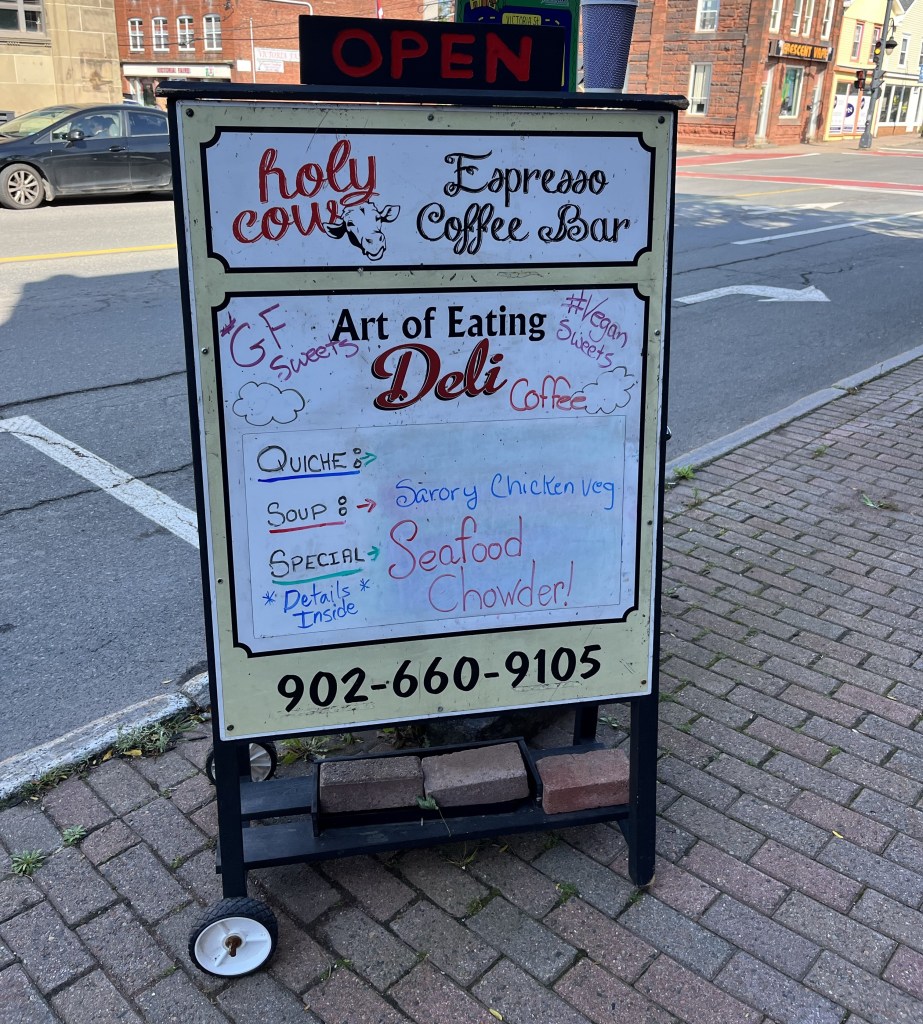 VICTORIA ST
OPEN
CRESCENT VAPE
holy cow
Espresso
Coffee Bar
GF
Sweets
Art of Eating
Deli
#Vegan
Sweets
Coffee
QUICHE:
SOUP: Savory Chicken veg
SPECIAL Seafood
Chowder!
* Details *
Inside
902-660-9105